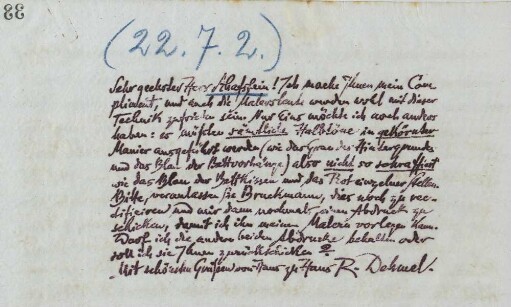 33
(22.7.2.)
Sehr geehrter Herr Schafstein! Ich mache Ihnen mein Com-
pliment, und auch die Malersleute werden wohl mit dieser
Technik zufrieden sein. Nur Eins möchte ich noch anders
haben: es müssen sämtliche Halbtöne in gekörnter
Manier ausgeführt werden (wie das Grau des Hintergrundes
und das Blau der Bettvorhänge) also nicht so schraffiert
wie das Blau der Bettkissen und das Rot einzelner Stellen.
Bitte, veranlassen Sie Bruckmann, dies noch zu rec-
tificieren und mir dann nochmals einen Abdruck zu
schicken, damit ich ihn meinen Malern vorlegen kann.
Darf ich die andern beiden Abdrucke behalten oder
soll ich sie Ihnen zurückschicken?
Mit schönsten Grüßen von Haus zu Haus R. Dehmel.